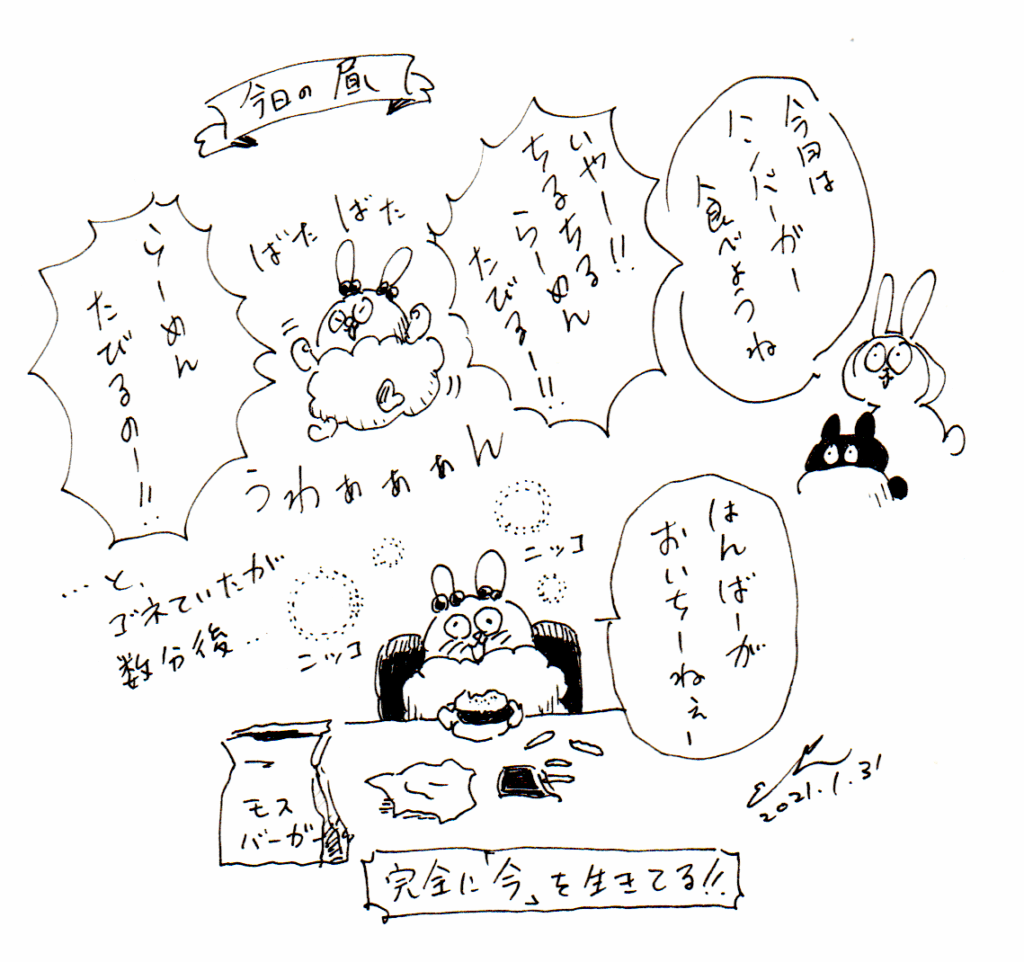 今日の昼
今日は
ハンバーガー
食べようね
いやー!!
ちるちる
らーめん
たびるー!!
ばたばた
らーめん
たびるのー!!
うわぁぁぁん
…と、
ゴネていたが
数分後…
ニッコ
ニッコ
はんばーが
おいちーねぇー
モス
バーガー
2021.1.31
完全に「今」を生きてる!!